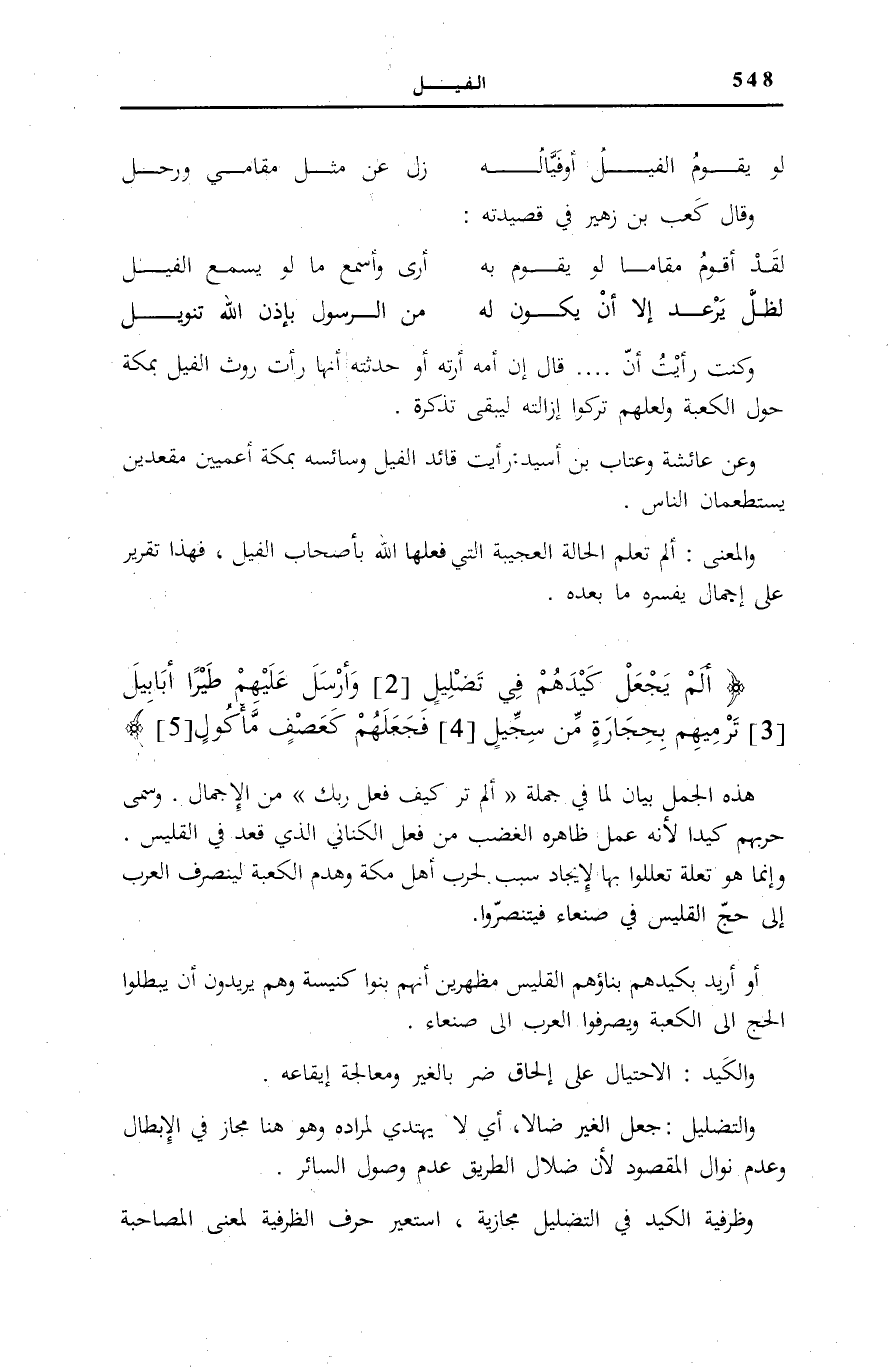 548
الفيـــل
لو يقـــومُ الفيـــــلُ أوفَيَّالُـــــه زل عن مثـــل مقامـــي ورحـــل
وقال كَعب بن زهير في قصيدته :
لقَـدْ أقـومُ مقامـا لو يقـــوم به أرى وأسمع ما لو يسمـع الفيـــل
لظـلَّ يَرْعـــد إلا أنْ يكـــون له من الـــرسول بإذن الله تنويـــل
وكنت رأيْتُ أنّ .... قال إن أمه أرته أو حدثته أنها رأت روث الفيل بمكة
حول الكعبة ولعلهم تركوا إزالته ليبقى تذكرة .
وعن عائشة وعتاب بن أسيد:رأيت قائد الفيل وسائسه بمكة أعميين مقعدين
يستطعمان الناس .
والمعنى : ألم تعلم الحالة العجيبة التي فعلها الله بأصحاب الفيل ، فهذا تقرير
على إجمال يفسره ما بعده .
﴿ أَلَمْ يَجْعَلْ كَيْدَهُمْ فِي تَضْلِيلٍ [2] وَأَرْسَلَ عَلَيْهِمْ طَيْرًا أَبَابِيلَ
[3] تَرْمِيهِم بِحِجَارَةٍ مِّن سِجِّيلٍ [4] فَجَعَلَهُمْ كَعَصْفٍ مَّأْكُولٍ[5] ﴾
هذه الجمل بيان لما في جملة « ألم تر كيف فعل ربك » من الإجمال . وسمى
حربهم كيدا لأنه عمل ظاهره الغضب من فعل الكناني الذي قعد في القليس .
وإنما هو تعلة تعللوا بها لإيجاد سبب لحرب أهل مكة وهدم الكعبة لينصرف العرب
إلى حجّ القليس في صنعاء فيتنصرّوا.
أو أريد بكيدهم بناؤهم القليس مظهرين أنهم بنوا كنيسة وهم يريدون أن يبطلوا
الحج الى الكعبة ويصرفوا العرب الى صنعاء .
والكَيد : الاحتيال على إلحاق ضر بالغير ومعالجة إيقاعه .
والتضليل :جعل الغير ضالا، أي لا يهتدي لمراده وهو هنا مجاز في الإبطال
وعدم نوال المقصود لأن ضلال الطريق عدم وصول السائر .
وظرفية الكيد في التضليل مجازية ، استعير حرف الظرفية لمعنى المصاحبة